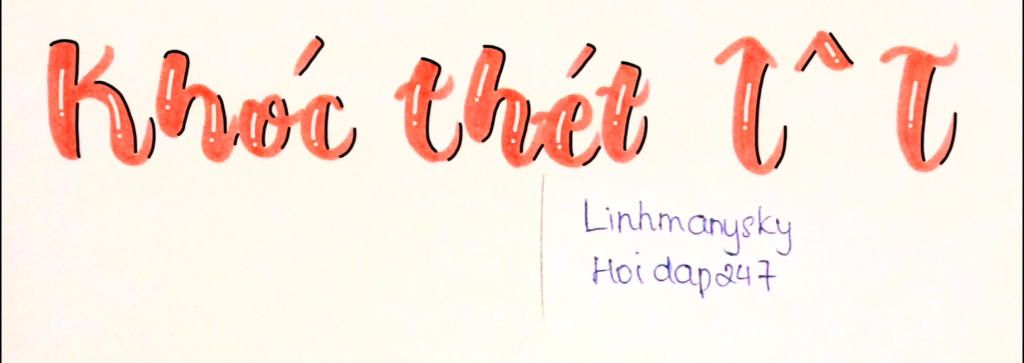 Khóc thét T^T
Linhmanysky
Hoidap247